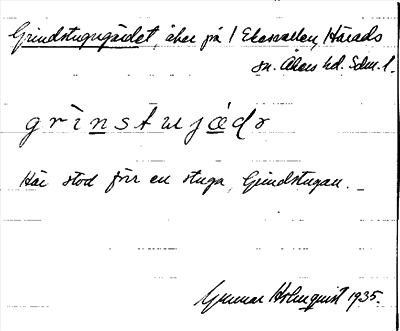 Grindstugugärdet, åker på 1 Ekevallen, Härads
sn. Åkers hd. Sdm. l.
grìnstujädə
Här stod förr en stuga, Grindstugan.
Gunnar Holmquist 1935.